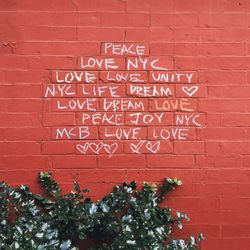 PEACE
LOVE NYC
LOVE LOVE UNITY
NYC LIFE DREAM ♡
LOVE DREAM LOVE
PEACE JOY NYC
MCB LOVE LOVE
♡♡♡ ♡♡